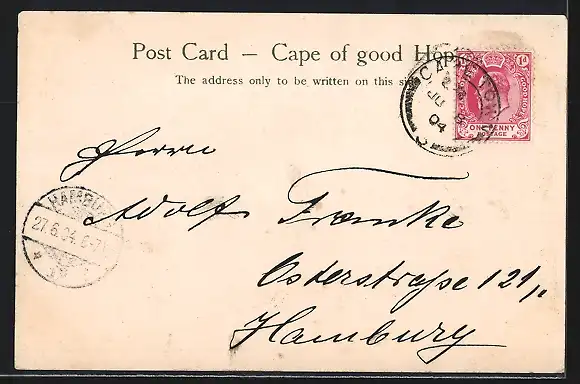 Post Card — Cape of good Hop
The address only to be written on this si
CAPE TOWN
JU
04
1d
ONE PENNY
POSTAGE
Herrn
Adolf Franke
Osterstraße 121,,
Hamburg
HAMBU
27.6.04. 6-7